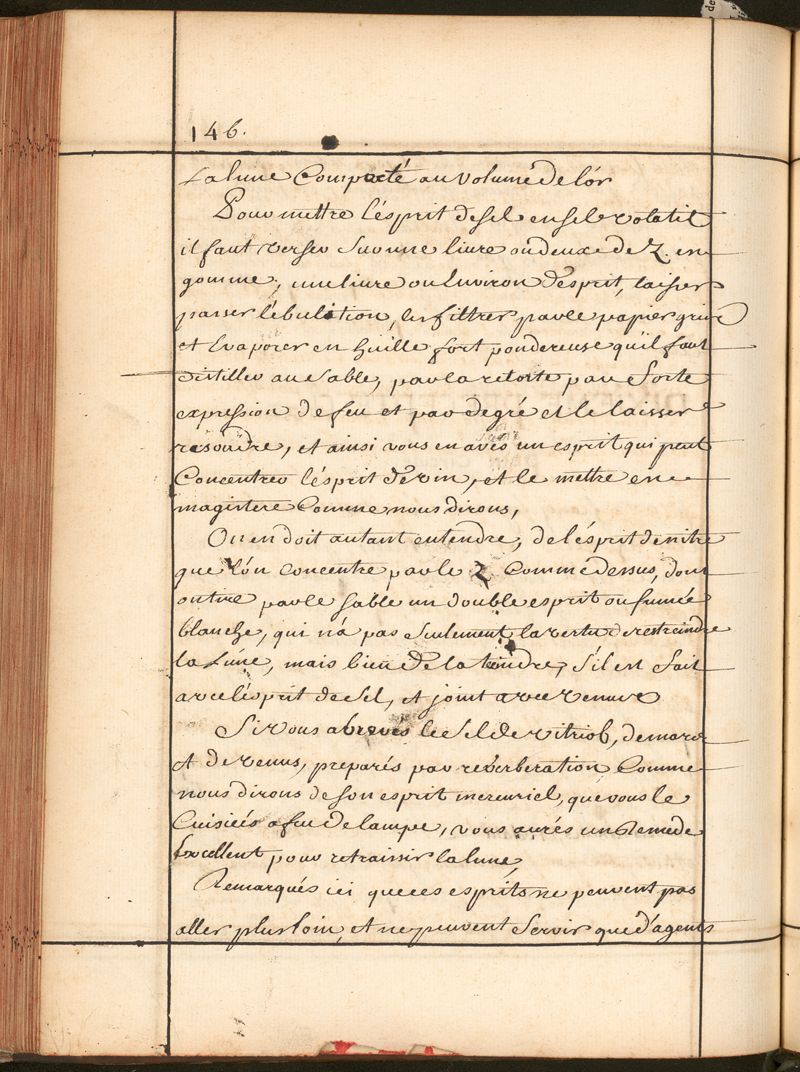 146.
La lune Compacté au volume de l'ór
Pour mettre l'ésprit de sel en sel volatil
il faut verser sur une livre ou deux de Z. en
gomme, une livre ou Environ d'ésprit, laisser
passer l'ébulition, les filtrer par le papier gris
et Evaporer en huille fort pondereuse qu'il faut
distiller au sable, par la retorte par forte
expression de feu et par degré et le laisser
resoudre, et ainsi vous en avés un esprit qui peut
Concentrer l'ésprit de vin, et le mettre en
magistere Comme nous dirons,
On en doit autant entendre, de l'ésprit de nitre
que l'on concentre par le Z Comme dessus, dont
on tire par le sable un double esprit ou fumée
blanche, qui n'á pas seulement la vertu de restreindre
la Lune, mais bien de la teindre, s'il est fait
avec l'ésprit de sel, et joint avec venus
Si vous abrevés le sel de vitriol, de mars
et de venus, preparés par reverberation Comme
nous dirons de son esprit mercuriel, que vous le
Cuisiés a feu de lampe, vous aurés un Remede
Excellent pour retraissir la lune,
Remarqués ici que ces esprits ne peuvent pas
aller plus loin, et ne peuvent servir que d'agents